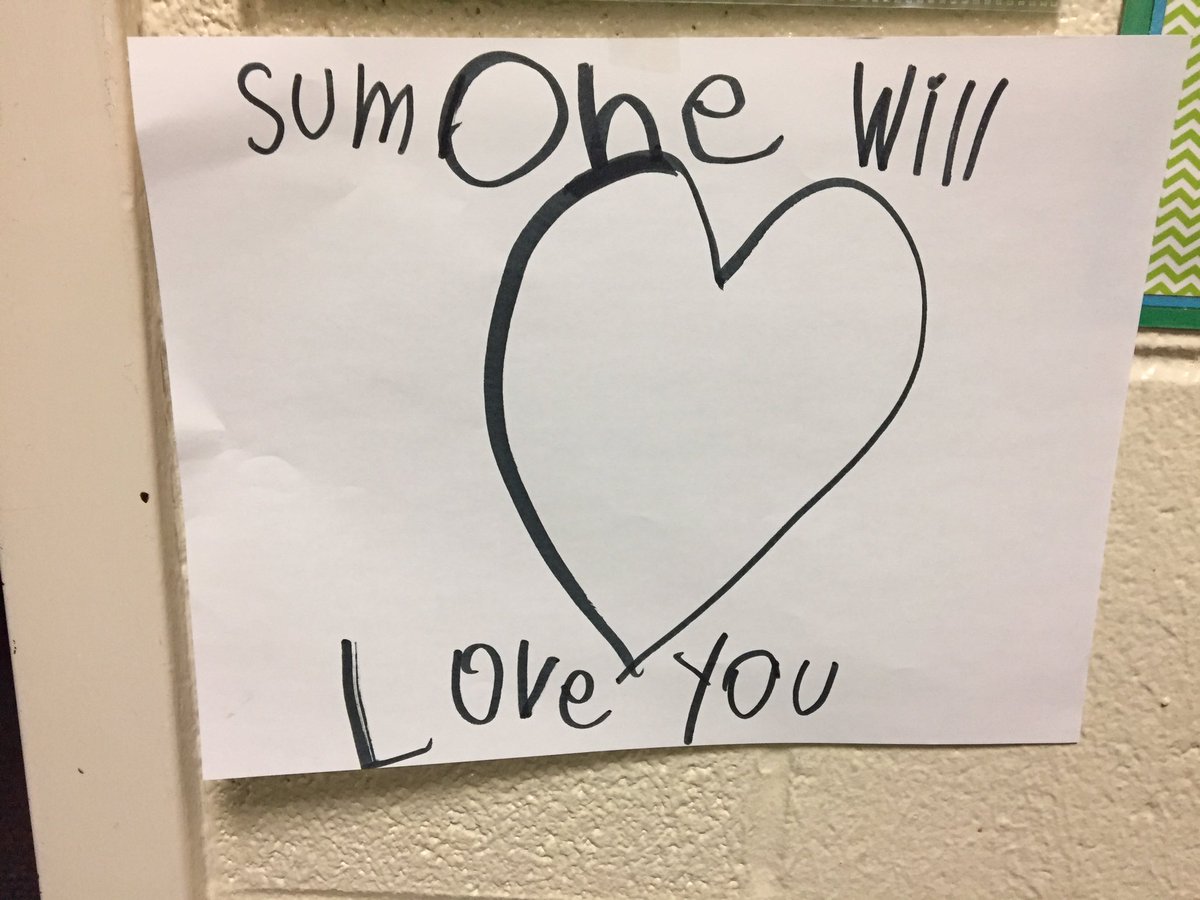 sumOne will
Love you